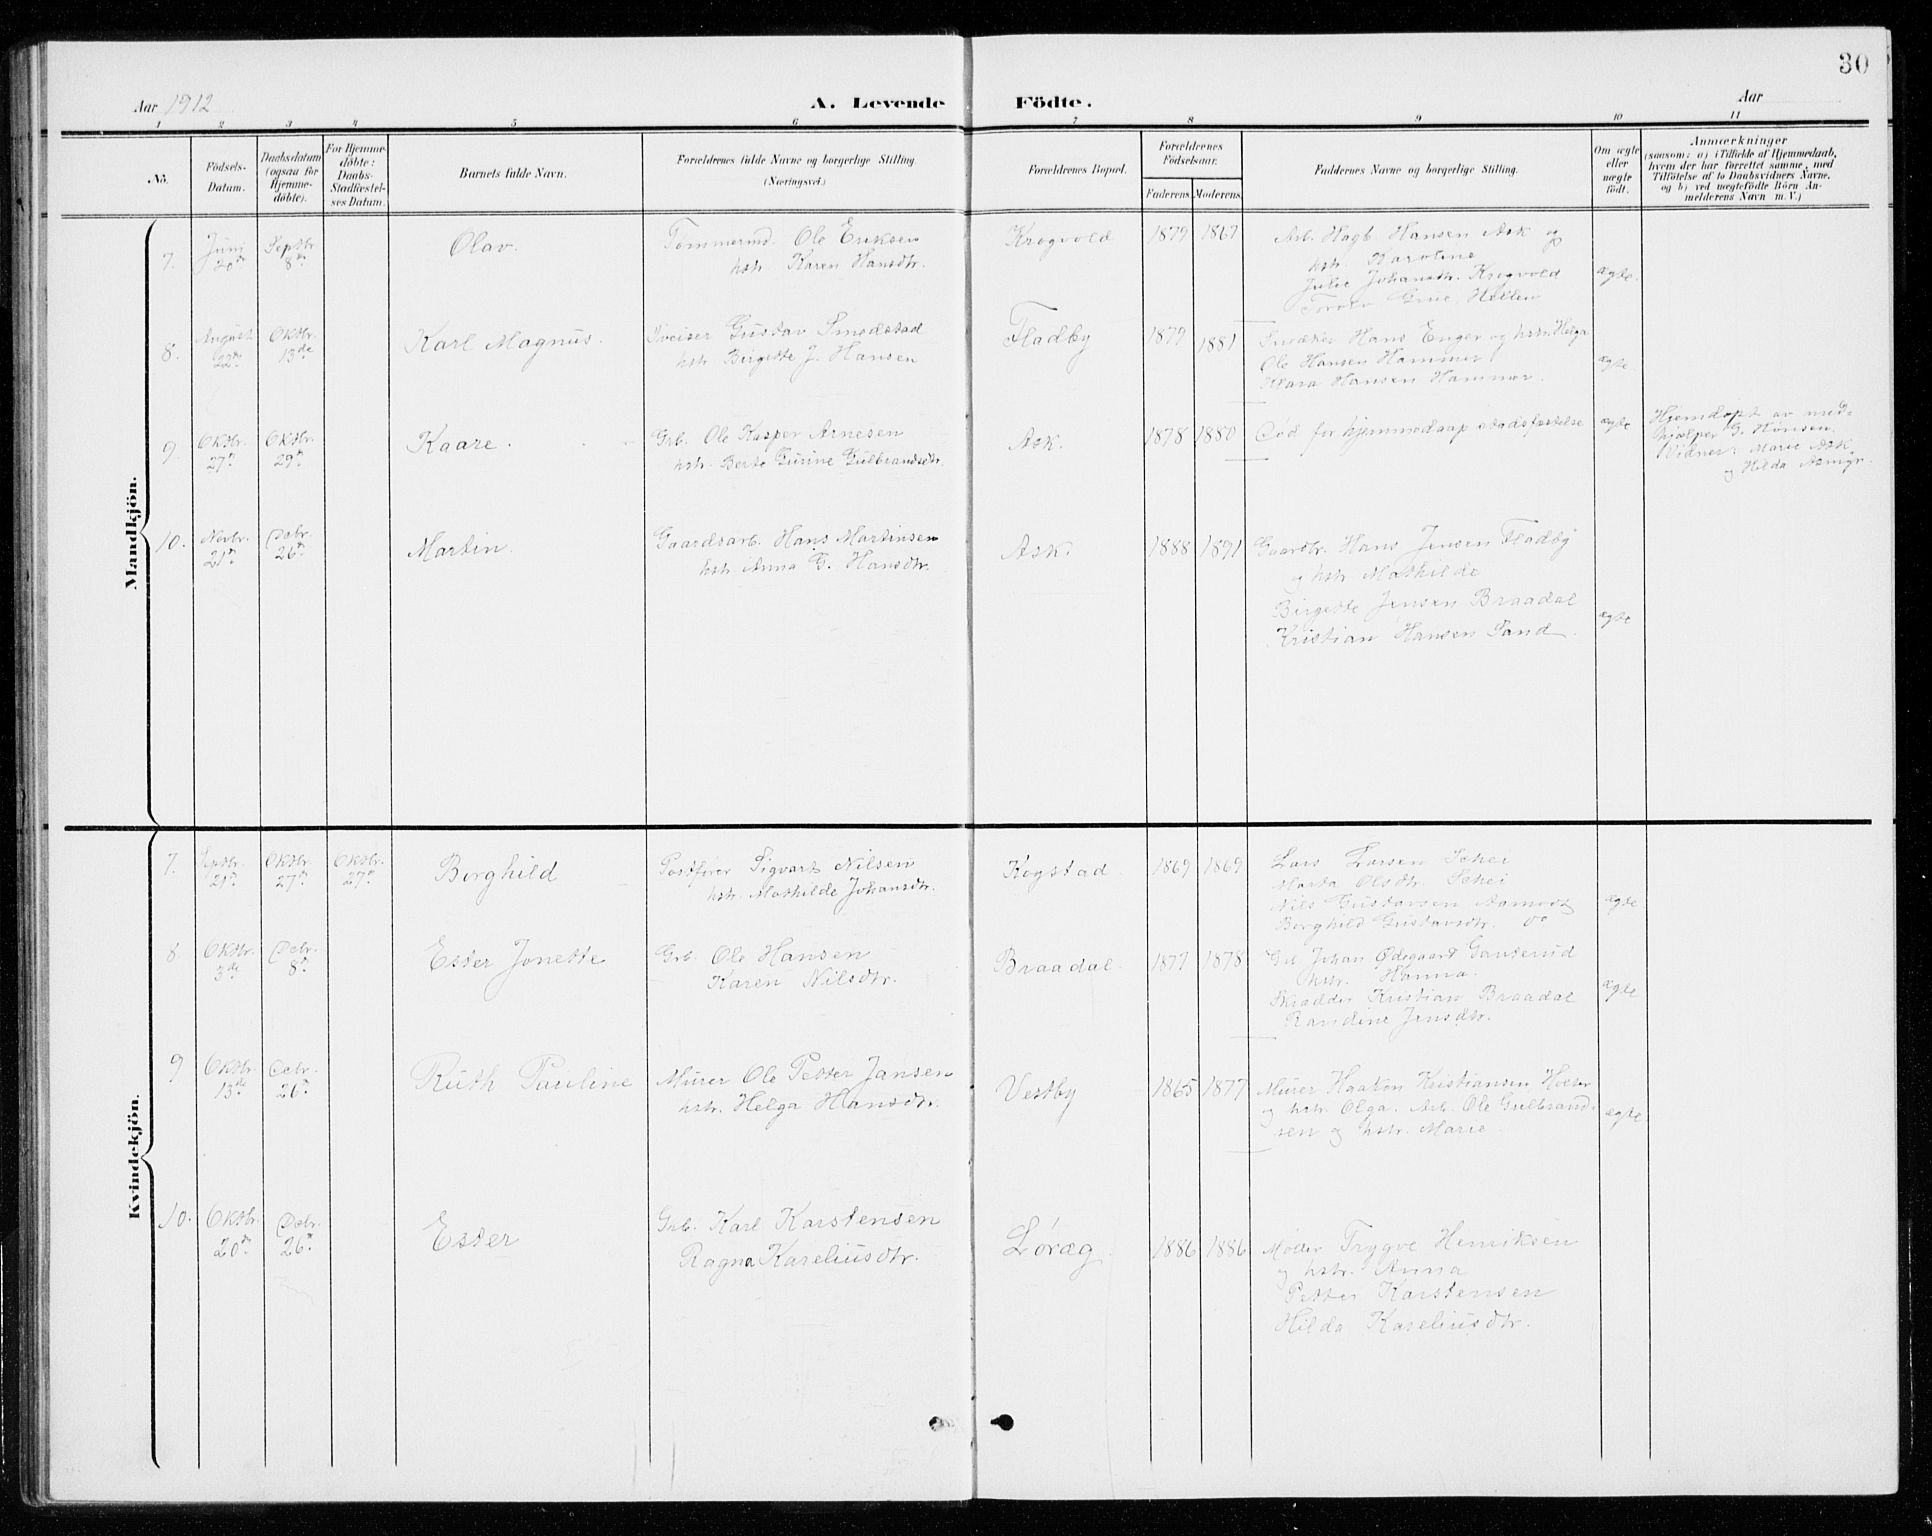 30
Aar 1912
A. Levende Födte.
Aar
1 2 3 4 5 6 7 8 9 10 11
No.
Födsels-
Datum.
Daabsdatum
(ogsaa for
Hjemme-
døbte).
For Hjemme-
døbte:
Daabs-
Stadfæstel-
ses Datum.
Barnets fulde Navn.
Forældrenes fulde Navne og borgerlige Stilling.
(Næringsvei.)
Forældrenes Bopæl.
Forældrenes
Fødselsaar.
Faderens. Moderens.
Faddernes Navne og borgerlige Stilling.
Om ægte
eller
uægte
født.
Anmærkninger
(saasom: a) i Tilfælde af Hjemmedaab,
hvem der har forrettet samme, med
Tilføielse af to Daabsvidners Navne,
og b) ved uægtefødte Börn An-
melderens Navn m. V.)
Mandkjön.
7. Juni 20de Septbr. 8de Olav.
Tømmermd. Ole Eriksen
hstr. Karen Hansdtr.
Krogvold 1879 1867
Arb. Hagb. Hansen Ask og
hstr. Karoline
Julie Johansdtr. Krogvold
Grue, Hellen
ægte.
8. August 22de Oktbr. 13de Karl Magnus.
Gustav Smedstad
hstr. Birgitte J. Hansen
Fladby 1879 1881
Hans Enger og hstr. Helga
Ole Hansen Hammer
Klara Hansen Hammer.
ægte
9. Oktbr. 27de Oktbr. 29de Kaare.
Grb. Ole Kasper Arnesen
hstr. Berte Gurine Gulbrandsdtr.
Ask. 1878 1880
Død før hjemmedaap stadsfæstelse
ægte
Hjemdøpt av med-
hjælper G. Hønsen.
Vidner: Marie Ask
og Hilda
10. Novbr. 21de Debr. 26de Martin.
Gaardsarb. Hans Martinsen
hstr. Anna G. Hansdtr.
Ask. 1888 1891
Gaardbr. Hans Jensen Fladby
og hstr. Mathilde
Birgitte Jensen Braadal
Kristian Hansen Sand
ægte
Kvindekjön.
7. Septbr. 21de Oktbr. 27de Oktbr. 27de Borghild
Postfører Sigvart Nilsen
hstr. Mathilde Johansdtr.
Kogstad 1869 1869
Lars Larsen Schei
Marta Olsdtr. Schei
Nils Gustavsen
Borghild Gustavsdtr. do
ægte
8. Oktbr. 3de Debr. 8de Ester Jonette
Grb. Ole Hansen
Karen Nilsdtr.
Braadal. 1877 1878
Johan Ødegaard
hstr. Hanna.
Skrædder Kristian Braadal
Randine Jensdtr.
ægte
9 Oktbr. 13de Debr. 26de Ruth Pauline
Murer Ole Petter Jansen
hstr. Helga Hansdtr.
Vestby 1865 1877
Murer Haakon Kristiansen Holter
og hstr. Olga. Arb. Ole Gulbrand-
sen og hstr. Marie
ægte
10. Oktbr. 20de Debr. 26de Ester
Grb. Karl Karstensen
Ragna Kareliusdtr.
Løræg 1886 1886
Møller Trygve Henriksen
og hstr. Anna
Petter Karstensen
Hilda Kareliusdtr.